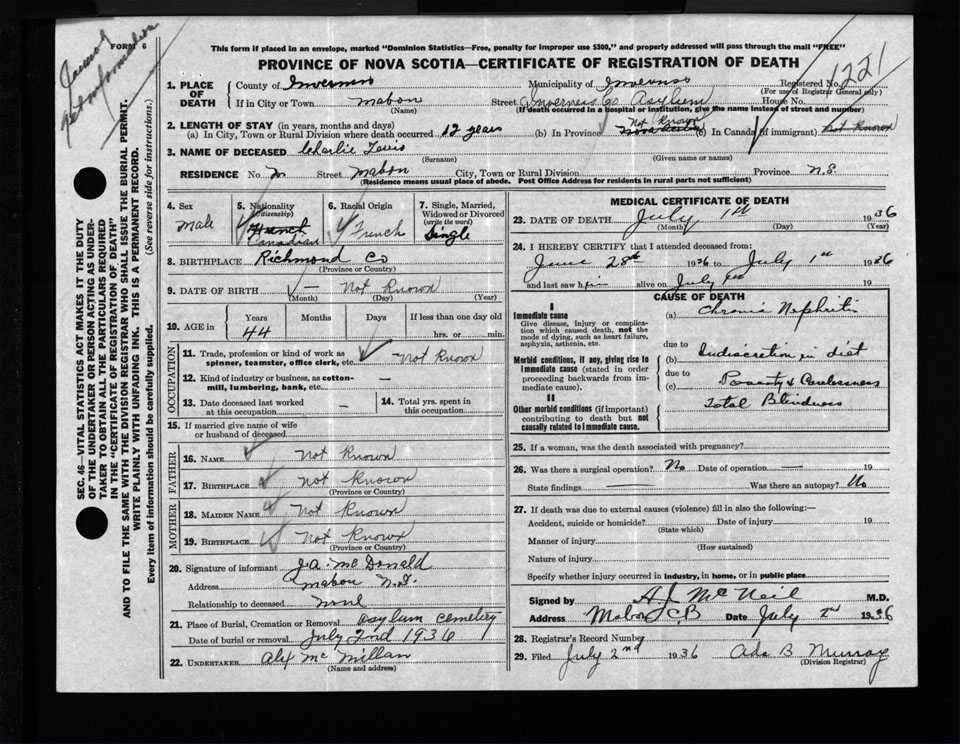 FORM 6
This form if placed in an envelope, marked "Dominion Statistics—Free, penalty for improper use $300," and properly addressed will pass through the mail "FREE"
PROVINCE OF NOVA SCOTIA—CERTIFICATE OF REGISTRATION OF DEATH
1221
1. PLACE OF DEATH
County of Inverness Municipality of Inverness Registered No.
(For use of Registrar General only)
If in City or Town Mabou Street Inverness Co Asylum House No.
(Name) (If death occurred in a hospital or institution, give the name instead of street and number)
2. LENGTH OF STAY (in years, months and days)
(a) In City, Town or Rural Division where death occurred 12 years (b) In Province Not Known Nova Scotia (c) In Canada (if immigrant) Not Known
3. NAME OF DECEASED Charlie
(Surname) (Given name or names)
RESIDENCE No. Street Mabou City, Town or Rural Division Province N.S.
(Residence means usual place of abode. Post Office Address for residents in rural parts not sufficient)
4. Sex
Male
5. Nationality (Citizenship)
French
Canadian
6. Racial Origin
French
7. Single, Married, Widowed or Divorced (write the word)
Single
8. BIRTHPLACE Richmond Co
(Province or Country)
9. DATE OF BIRTH — Not Known
(Month) (Day) (Year)
10. AGE in
Years Months Days If less than one day old
44 hrs. or min.
OCCUPATION
11. Trade, profession or kind of work as spinner, teamster, office clerk, etc. — Not Known
12. Kind of industry or business, as cotton-mill, lumbering, bank, etc. —
13. Date deceased last worked at this occupation — 14. Total yrs. spent in this occupation
15. If married give name of wife or husband of deceased
FATHER
16. NAME Not Known
17. BIRTHPLACE Not Known
(Province or Country)
MOTHER
18. MAIDEN NAME Not Known
19. BIRTHPLACE Not Known
(Province or Country)
20. Signature of informant J.A. McDonald
Address Mabou N.S.
Relationship to deceased None
21. Place of Burial, Cremation or Removal Asylum Cemetery
Date of burial or removal July 2nd 1936
22. UNDERTAKER Alex McMillan
(Name and address)
MEDICAL CERTIFICATE OF DEATH
23. DATE OF DEATH July 1st 1936
(Month) (Day) (Year)
24. I HEREBY CERTIFY that I attended deceased from:
June 28th 1936 to July 1st 1936
and last saw him alive on July 1st 19
CAUSE OF DEATH
I
Immediate cause
Give disease, injury or complication which caused death, not the mode of dying, such as heart failure, asphyxia, asthenia, etc.
(a) Chronic Nephritis
due to
Morbid conditions, if any, giving rise to immediate cause (stated in order proceeding backwards from immediate cause).
(b) Indiscretion in diet
due to
(c) Poverty & Carelessness
II
Other morbid conditions (if important) contributing to death but not causally related to immediate cause.
Total Blindness
25. If a woman, was the death associated with pregnancy?
26. Was there a surgical operation? No Date of operation — 19
State findings — Was there an autopsy? No
27. If death was due to external causes (violence) fill in also the following:—
Accident, suicide or homicide? Date of injury 19
(State which)
Manner of injury
(How sustained)
Nature of injury
Specify whether injury occurred in industry, in home, or in public place
Signed by A J McNeil M.D.
Address Mabou C.B Date July 2nd 1936
28. Registrar's Record Number
29. Filed July 2nd 1936 Ada B Murray
(Division Registrar)
SEC. 46—VITAL STATISTICS ACT MAKES IT THE DUTY
OF THE UNDERTAKER OR PERSON ACTING AS UNDER-
TAKER TO OBTAIN ALL THE PARTICULARS REQUIRED
IN THE "CERTIFICATE OF REGISTRATION OF DEATH"
AND TO FILE THE SAME WITH THE DIVISION REGISTRAR WHO SHALL ISSUE THE BURIAL PERMIT.
WRITE PLAINLY WITH UNFADING INK. THIS IS A PERMANENT RECORD.
Every item of information should be carefully supplied. (See reverse side for instructions.)